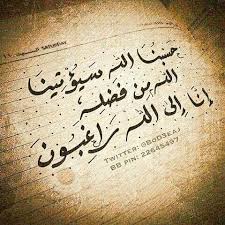 SATURDAY
حسبنا الله سيؤتينا
الله من فضله
إنّا إلى الله راغبون
TWITTER: @BOD3EAJ
BB PIN: 22645497